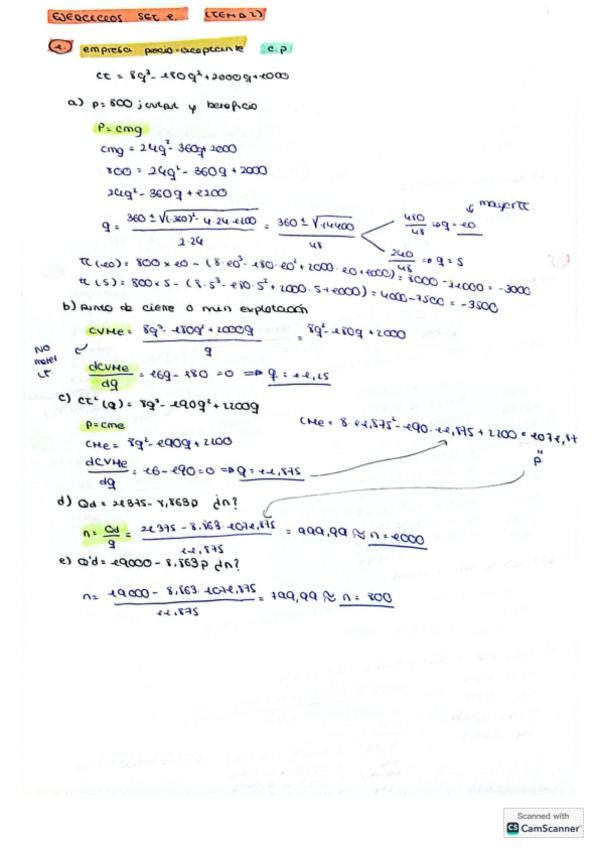 EJERCICIOS SET 1. (TEMA 2)
1. empresa precio-aceptante c.p
CT = 8q³ - 180q² + 2000q + 1000
a) p = 800 ¿output y beneficio
P = cmg
cmg = 24q² - 360q + 2000
800 = 24q² - 360q + 2000
24q² - 360q + 1200
q = 360 ± √(-360)² - 4·24·1200 / 2·24 = 360 ± √14400 / 48
480/48 ⇒ q = 10
240/48 ⇒ q = 5
π(10) = 800 × 10 - (8·10³ - 180·10² + 2000·10 + 1000) = 8000 - 11000 = -3000
π(5) = 800 × 5 - (8·5³ - 180·5² + 2000·5 + 1000) = 4000 - 7500 = -3500
b) Punto de cierre o min explotación
CVMe = 8q³ - 180q² + 2000q / q = 8q² - 180q + 2000
No meter
dCVMe/dq = 16q - 180 = 0 ⇒ q = 11,25
c) CT'(q) = 8q³ - 190q² + 2200q
P = cme
CMe = 8q² - 190q + 2200
CMe = 8·11,875² - 190·11,875 + 2200 = 1071,87
p
dCVMe/dq = 16 - 190 = 0 ⇒ q = 11,875
d) Qd = 21375 - 8,863p ¿n?
n = Qd/q = 21375 - 8,863·1071,875 / 11,875 = 999,99 ≈ n = 1000
e) Q'd = 19000 - 8,863p ¿n?
n = 19000 - 8,863·1071,875 / 11,875 = 799,99 ≈ n = 800
Scanned with
CS CamScanner